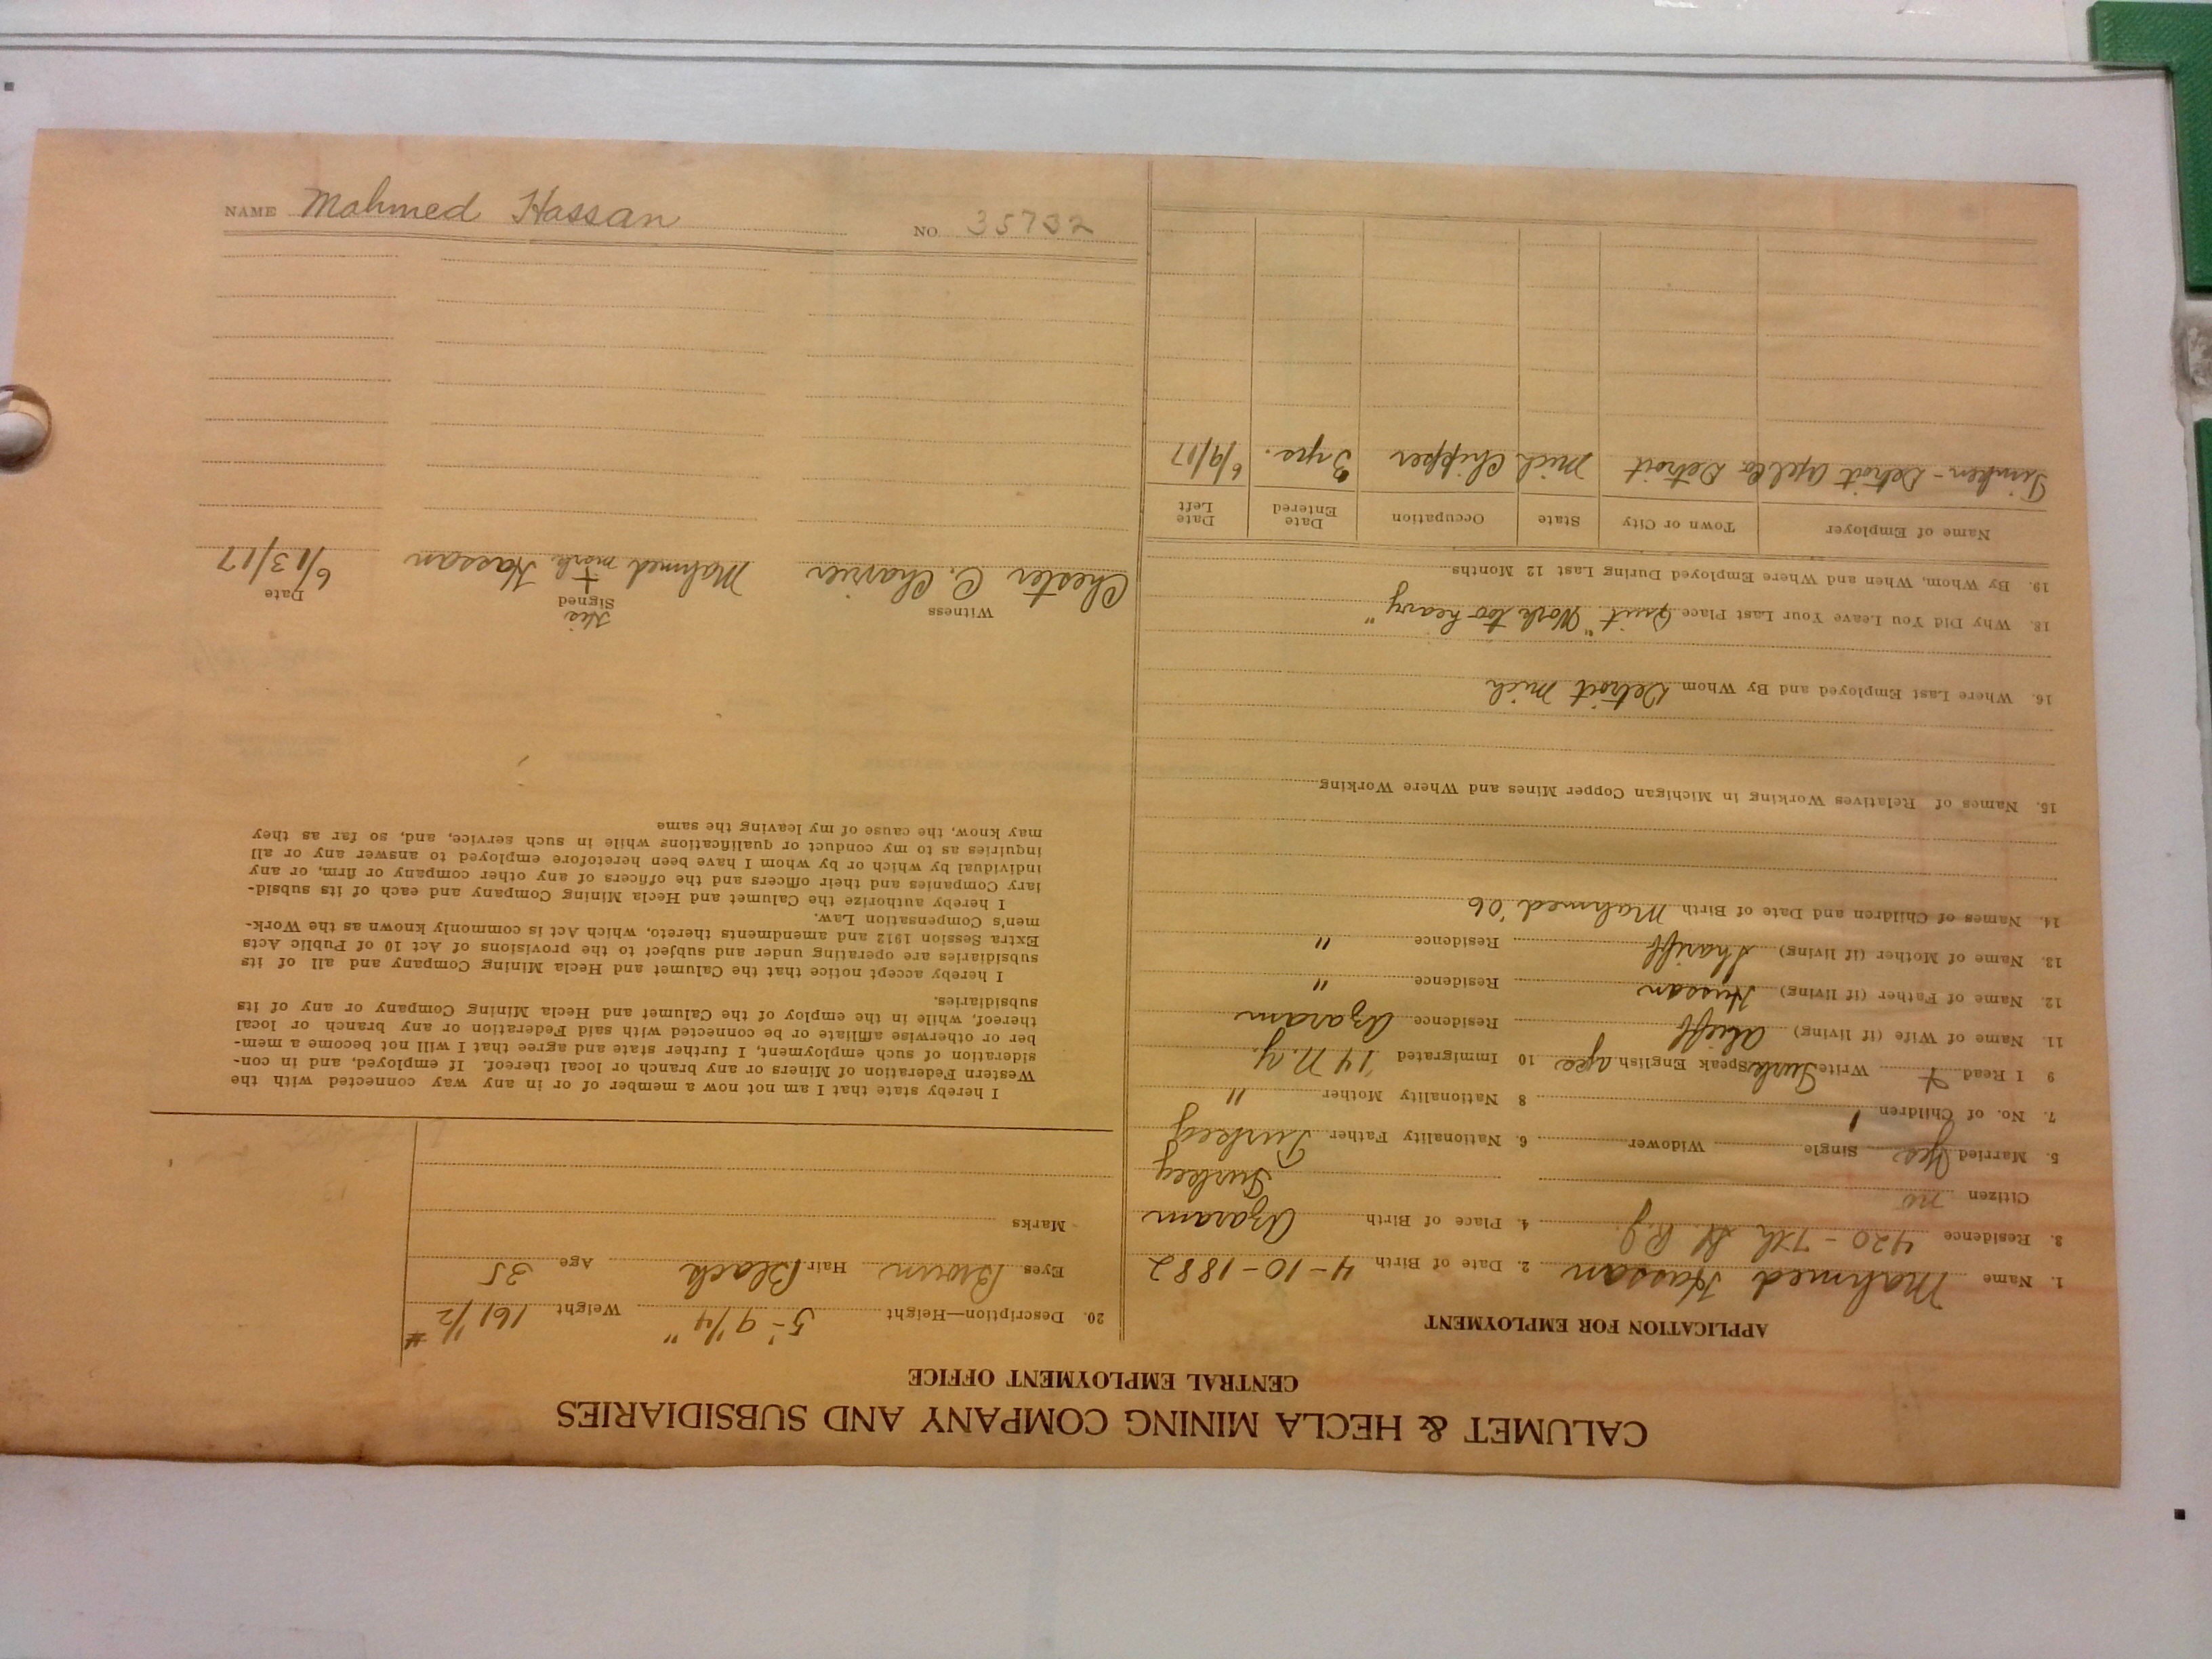 NAME Mahmed Hassan NO. 35732
CALUMET & HECLA MINING COMPANY AND SUBSIDIARIES
CENTRAL EMPLOYMENT OFFICE
APPLICATION FOR EMPLOYMENT
1. Name Mahmed Hassan 2. Date of Birth 4-10-1882
3. Residence 420-7th St. R.J. 4. Place of Birth Azaram
Citizen no Turkey
5. Married Yes Single Widower 6. Nationality Father Turkey
7. No. of Children 1 8 Nationality Mother "
9 I Read Write Turk Speak English Yes 10 Immigrated '14 N.Y.
11. Name of Wife (if living) Residence Azaram
12. Name of Father (if living) Hassan Residence "
13. Name of Mother (if living) Shariff Residence "
14. Names of Children and Date of Birth Mahmed '06
15. Names of Relatives Working in Michigan Copper Mines and Where Working
16. Where Last Employed and By Whom Detroit Mich
18. Why Did You Leave Your Last Place Quit "Work too heavy"
19. By Whom, When and Where Employed During Last 12 Months
Name of Employer Town or City State Occupation Date Entered Date Left
Timken-Detroit Axel Co Detroit Mich Chipper 3 yrs. 6/9/17
20. Description—Height 5-9 1/4" Weight 161 1/2 #
Eyes Brown Hair Black Age 35
Marks
I hereby state that I am not now a member of or in any way connected with the
Western Federation of Miners or any branch or local thereof. If employed, and in con-
sideration of such employment, I further state and agree that I will not become a mem-
ber or otherwise affiliate or be connected with said Federation or any branch or local
thereof, while in the employ of the Calumet and Hecla Mining Company or any of its
subsidiaries.
I hereby accept notice that the Calumet and Hecla Mining Company and all of its
subsidiaries are operating under and subject to the provisions of Act 10 of Public Acts
Extra Session 1912 and amendments thereto, which Act is commonly known as the Work-
men's Compensation Law.
I hereby authorize the Calumet and Hecla Mining Company and each of its subsid-
iary Companies and their officers and the officers of any other company or firm, or any
individual by which or by whom I have been heretofore employed to answer any or all
inquiries as to my conduct or qualifications while in such service, and, so far as they
may know, the cause of my leaving the same
Witness Signed Date
His
Chester C. Mahmed + mark Hassan 6/13/17